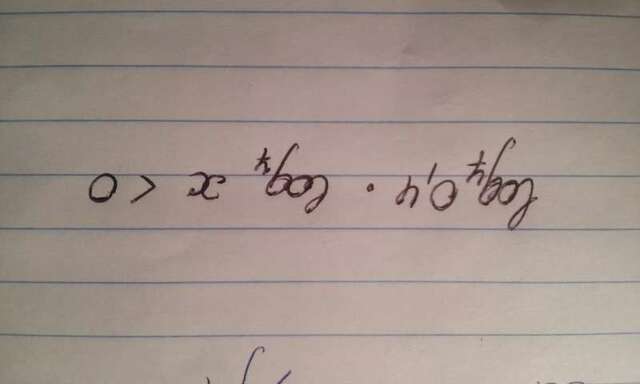 log₇ 0,4 · log₇ x < 0